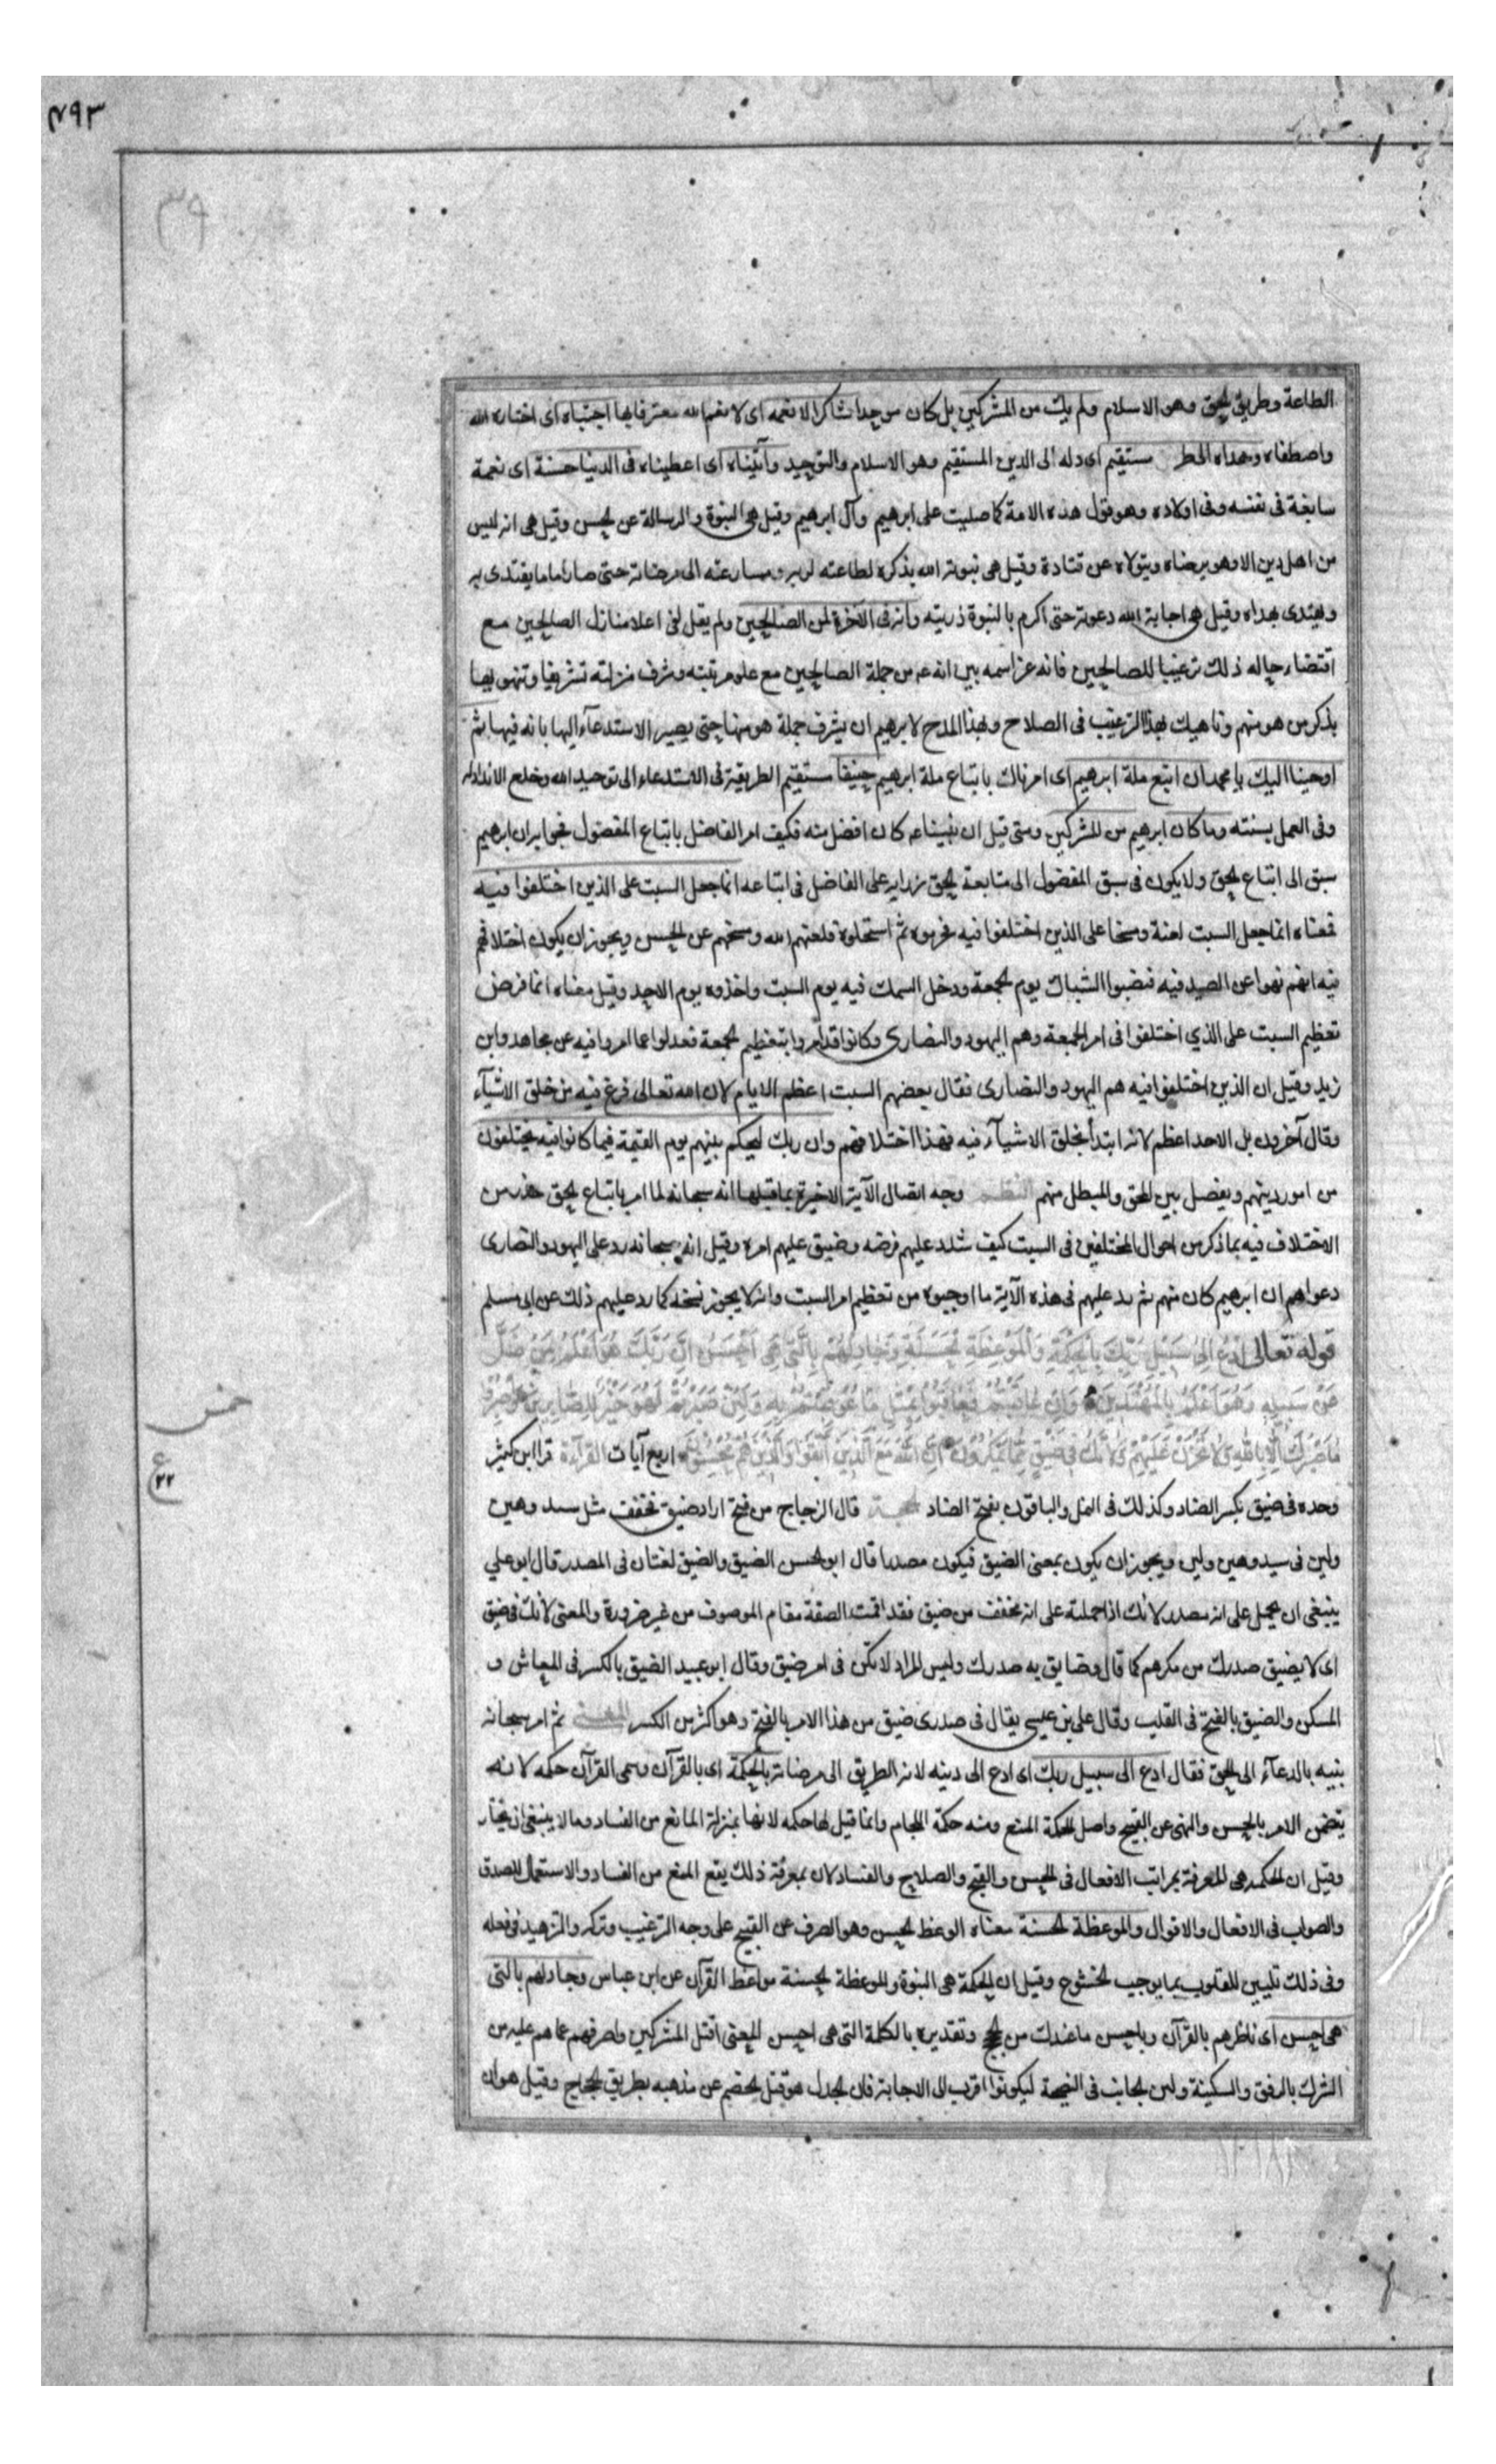 ٤٩٣
٣٩
الطاعة وطريق الحق وهو الاسلام ولم يك من المشركين بل كان موحدا شاكرا لانعمه اى لانعم الله معترفا بها اجتباه اى اختاره الله
واصطفاه وهداه الى صراط مستقيم اى دله الى الدين المستقيم وهو الاسلام والتوحيد وآتيناه اى اعطيناه فى الدنيا حسنة اى نعمة
سابغة فى نفسه وفى اولاده وهو قول هذه الامة كما صليت على ابرهيم وآل ابرهيم وقيل هى النبوة والرسالة عن الحسن وقيل هى انه ليس
من اهل دين الا وهو يرضاه ويتولاه عن قتادة وقيل هى تنويه الله بذكره لطاعته لربه ومسارعته الى مرضاته حتى صار اماما يقتدى به
ويهتدى بهداه وقيل هو اجابة الله دعوته حتى اكرم بالنبوة ذريته وانه فى الآخرة لمن الصالحين ولم يقل لفى اعلا منازل الصالحين مع
اقتضاء حاله ذلك ترغيبا للصالحين فانه عز اسمه بين انه عه من جملة الصالحين مع علو مرتبته وشرف منزلته تشريفا وتنويها
بذكر من هو منهم وناهيك بهذا الترغيب فى الصلاح وبهذا المدح لابرهيم ان يشرف جملة هو منها حتى يصير الاستدعآء اليها بانه فيها ثم
اوحينا اليك يا محمد ان اتبع ملة ابرهيم اى امرناك باتباع ملة ابرهيم حنيفا مستقيم الطريقة فى الاستدعاء الى توحيد الله وخلع الانداد له
وفى العمل بسنته وما كان ابرهيم من المشركين ومتى قيل ان نبينا عه كان افضل منه فكيف امر الفاضل باتباع المفضول فجوابه ان ابرهيم
سبق الى اتباع الحق ولا يكون فى سبق المفضول الى متابعة الحق زراية على الفاضل فى اتباعه انما جعل السبت على الذين اختلفوا فيه
فمعناه انما جعل السبت لعنة ومسخا على الذين اختلفوا فيه فحرموه ثم استحلوه فلعنهم الله ومسخهم عن الحسن ويجوز ان يكون اختلافهم
فيه انهم نهوا عن الصيد فيه فنصبوا الشباك يوم الجمعة ودخل السمك فيه يوم السبت واخذوه يوم الاحد وقيل معناه انما فرض
تعظيم السبت على الذي اختلفوا فى امر الجمعة وهم اليهود والنصارى وكانوا قد امروا بتعظيم الجمعة فعدلوا عما امروا فيه عن مجاهد وابن
زيد وقيل ان الذين اختلفوا فيه هم اليهود والنصارى فقال بعضهم السبت اعظم الايام لان الله تعالى فرغ فيه من خلق الاشيآء
وقال آخرون بل الاحد اعظم لانه ابتدأ بخلق الاشيآء فيه فهذا اختلافهم وان ربك ليحكم بينهم يوم القيمة فيما كانوا فيه يختلفون
من امور دينهم ويفصل بين المحق والمبطل منهم النظم وجه اتصال الآية الاخيرة بما قبلها انه سبحانه لما امر باتباع الحق حذر من
الاختلاف فيه بما ذكر من احوال المختلفين فى السبت كيف شدد عليهم فرضه وضيق عليهم امره وقيل انه سبحانه رد على اليهود والنصارى
دعواهم ان ابرهيم كان منهم ثم رد عليهم فى هذه الآية ما اوجبوه من تعظيم امر السبت وانه لا يجوز نسخه كما رد عليهم ذلك عن ابى مسلم
قوله تعالى ادع الى سبيل ربك بالحكمة والموعظة الحسنة وجادلهم بالتى هى احسن ان ربك هو اعلم بمن ضل
عن سبيله وهو اعلم بالمهتدين وان عاقبتم فعاقبوا بمثل ما عوقبتم به ولئن صبرتم لهو خير للصابرين واصبر و
ما صبرك الا بالله ولا تحزن عليهم ولا تك فى ضيق مما يمكرون ان الله مع الذين اتقوا والذين هم محسنون اربع آيات القرآءة قرا ابن كثير
وحده فى ضيق بكسر الضاد وكذلك فى النمل والباقون بفتح الضاد الحجة قال الزجاج من فتح اراد ضيق فخفف مثل سيد وهين
ولين فى سيد وهين ولين ويجوز ان يكون بمعنى الضيق فيكون مصدرا قال ابو الحسن الضيق والضيق لغتان فى المصدر قال ابو علي
ينبغى ان يحمل على انه مصدر لانك اذا حملته على انه مخفف من ضيق فقد اقمت الصفة مقام الموصوف من غير ضرورة والمعنى لا تك فى ضيق
اى لا يضيق صدرك من مكرهم كما قال وضايق به صدرك وليس المراد لا تكن فى امر ضيق وقال ابو عبيد الضيق بالكسر فى المعاش و
المسكن والضيق بالفتح فى القلب وقال على بن عيسى يقال فى صدرى ضيق من هذا الامر بالفتح وهو اكثر من الكسر المعنى ثم امر سبحانه
نبيه بالدعآء الى الحق فقال ادع الى سبيل ربك اى ادع الى دينه لانه الطريق الى مرضاته بالحكمة اى بالقرآن وسمى القرآن حكمه لانه
يتضمن الامر بالحسن والنهى عن القبيح واصل الحكمة المنع ومنه حكمة اللجام وانما قيل لها حكمه لانها بمنزلة المانع من الفساد وما لا ينبغى ان يختار
وقيل ان الحكمه هى المعرفة بمراتب الافعال فى الحسن والقبح والصلاح والفساد لان بمعرفة ذلك يقع المنع من الفساد والاستعمال للصدق
والصواب فى الافعال والاقوال والموعظة الحسنة معناه الوعظ الحسن وهو الصرف عن القبيح على وجه الترغيب وتركه والتزهيد فى فعله
وفى ذلك تليين للقلوب بما يوجب الخشوع وقيل ان الحكمة هى النبوة والموعظة الحسنة مواعظ القرآن عن ابن عباس وجادلهم بالتى
هى احسن اى ناظرهم بالقرآن وباحسن ما عندك من الحجج وتقديره بالكلمة التى هى احسن المعنى اقتل المشركين واصرفهم عما هم عليه من
الشرك بالرفق والسكينة ولين الجانب فى النصيحة ليكونوا اقرب الى الاجابة فان الجدل هو فتل الخصم عن مذهبه بطريق الحجاج وقيل هو ان
خمس
ع
٢٢